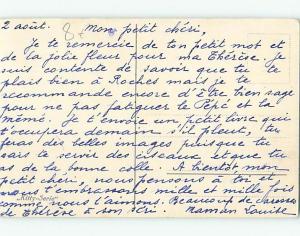 2 août. 8€ Mon petit chéri,
je te remercie de ton petit mot et
de la jolie fleur pour ma Thérèse. Je
suis contente de savoir que tu te
plais bien à Roches mais je te
recommande encore d'être bien sage
pour ne pas fatiguer le Pépé et la
mémé. Je t'envoie un petit livre qui
t'occupera demain s'il pleut, tu
feras des belles images puisque tu
sais te servir des ciseaux et que tu
as de la bonne colle. A bientôt mon
petit chéri, nous pensons à toi et
nous t'embrassons mille et mille fois
comme nous t'aimons. Beaucoup de caresses
de Thérèse à son Maman Louise